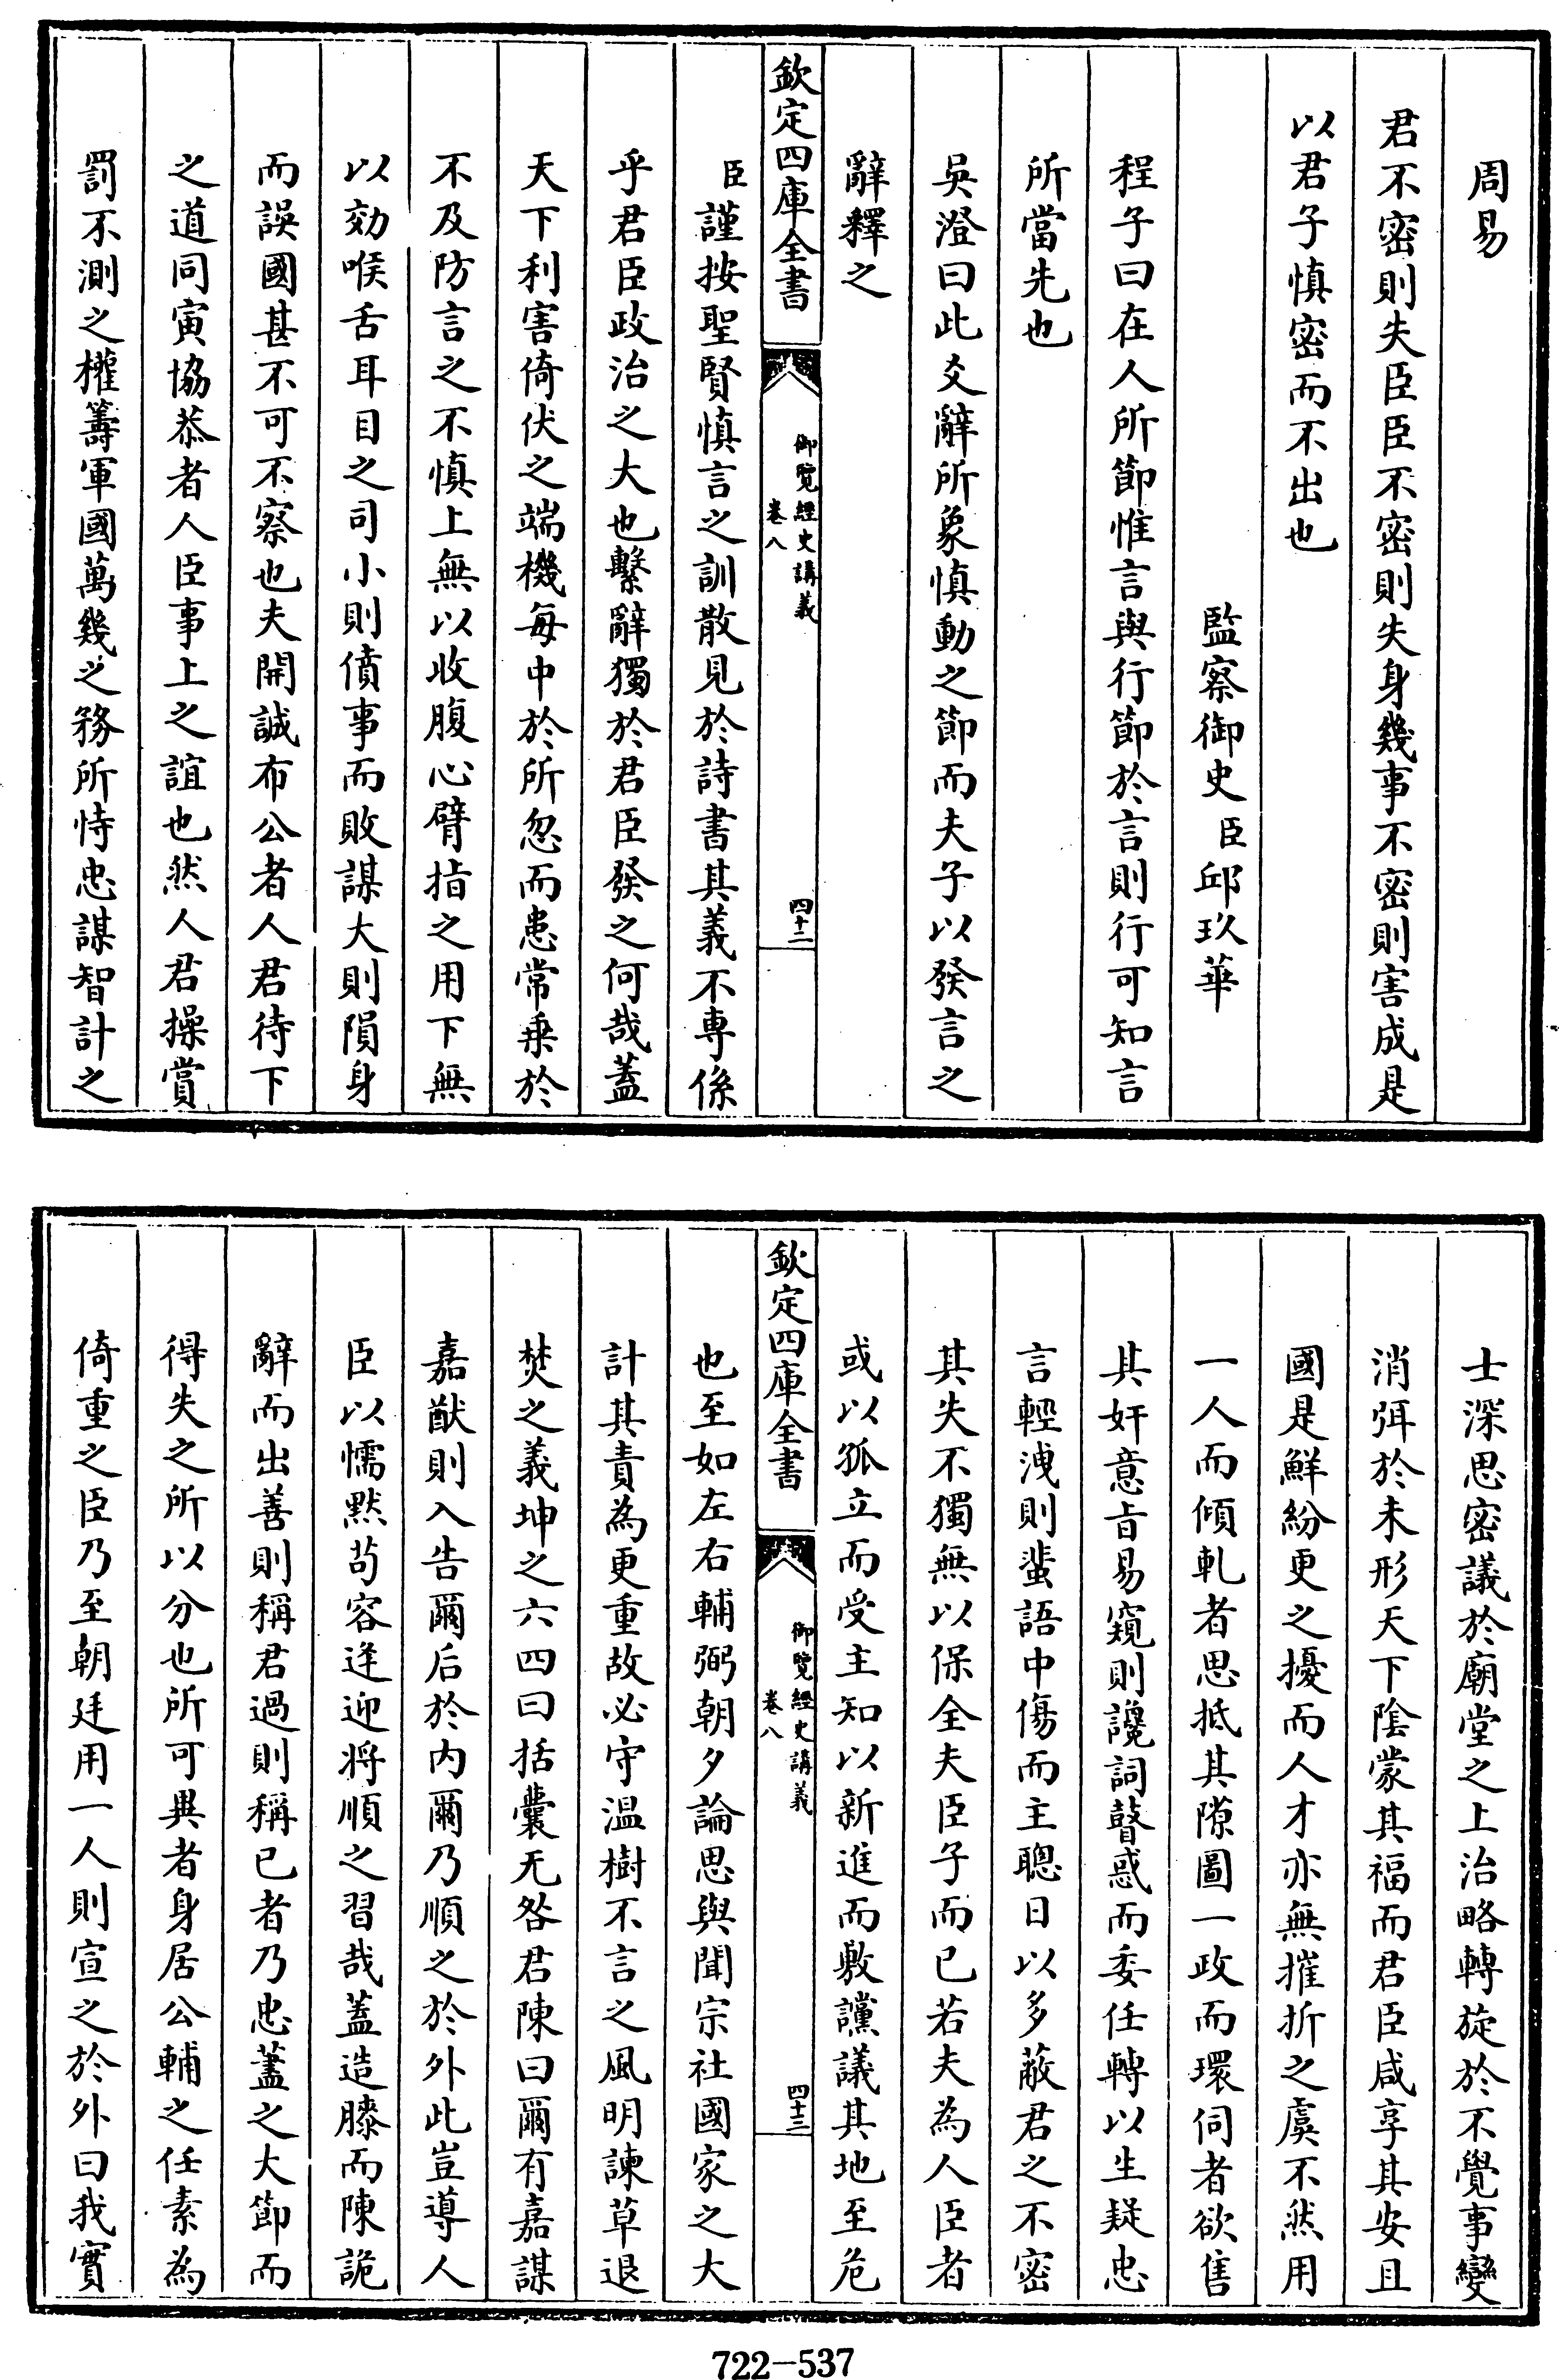 周易
君不密則失臣臣不密則失身幾事不密則害成是
以君子慎密而不出也
監察御史臣邱玖華
程子曰在人所節惟言與行節於言則行可知言
所當先也
吳澄曰此爻辭所象慎動之節而夫子以發言之
辭釋之
欽定四庫全書
御覽經史講義
卷八
四十二
臣謹按聖賢慎言之訓散見於詩書其義不專係
乎君臣政治之大也繫辭獨於君臣發之何哉蓋
天下利害倚伏之端機每中於所忽而患常乗於
不及防言之不慎上無以收腹心臂指之用下無
以効喉舌耳目之司小則僨事而敗謀大則隕身
而誤國甚不可不察也夫開誠布公者人君待下
之道同寅協恭者人臣事上之誼也然人君操賞
罰不測之權籌軍國萬幾之務所恃忠謀智計之
士深思密議於廟堂之上治略轉旋於不覺事變
消弭於未形天下陰蒙其福而君臣咸享其安且
國是鮮紛更之擾而人才亦無摧折之虞不然用
一人而傾軋者思抵其隙圖一政而環伺者欲售
其奸意旨易窺則讒詞瞽惑而委任轉以生疑忠
言輕洩則蜚語中傷而主聰日以多蔽君之不密
其失不獨無以保全夫臣子而已若夫為人臣者
或以孤立而受主知以新進而敷讜議其地至危
欽定四庫全書
御覽經史講義
卷八
四十三
也至如左右輔弼朝夕論思與聞宗社國家之大
計其責為更重故必守温樹不言之風明諫草退
焚之義坤之六四曰括囊无咎君陳曰爾有嘉謀
嘉猷則入告爾后於内爾乃順之於外此豈導人
臣以懦默苟容逢迎将順之習哉蓋造膝而陳詭
辭而出善則稱君過則稱已者乃忠藎之大節而
得失之所以分也所可異者身居公輔之任素為
倚重之臣乃至朝廷用一人則宣之於外曰我實
722-537